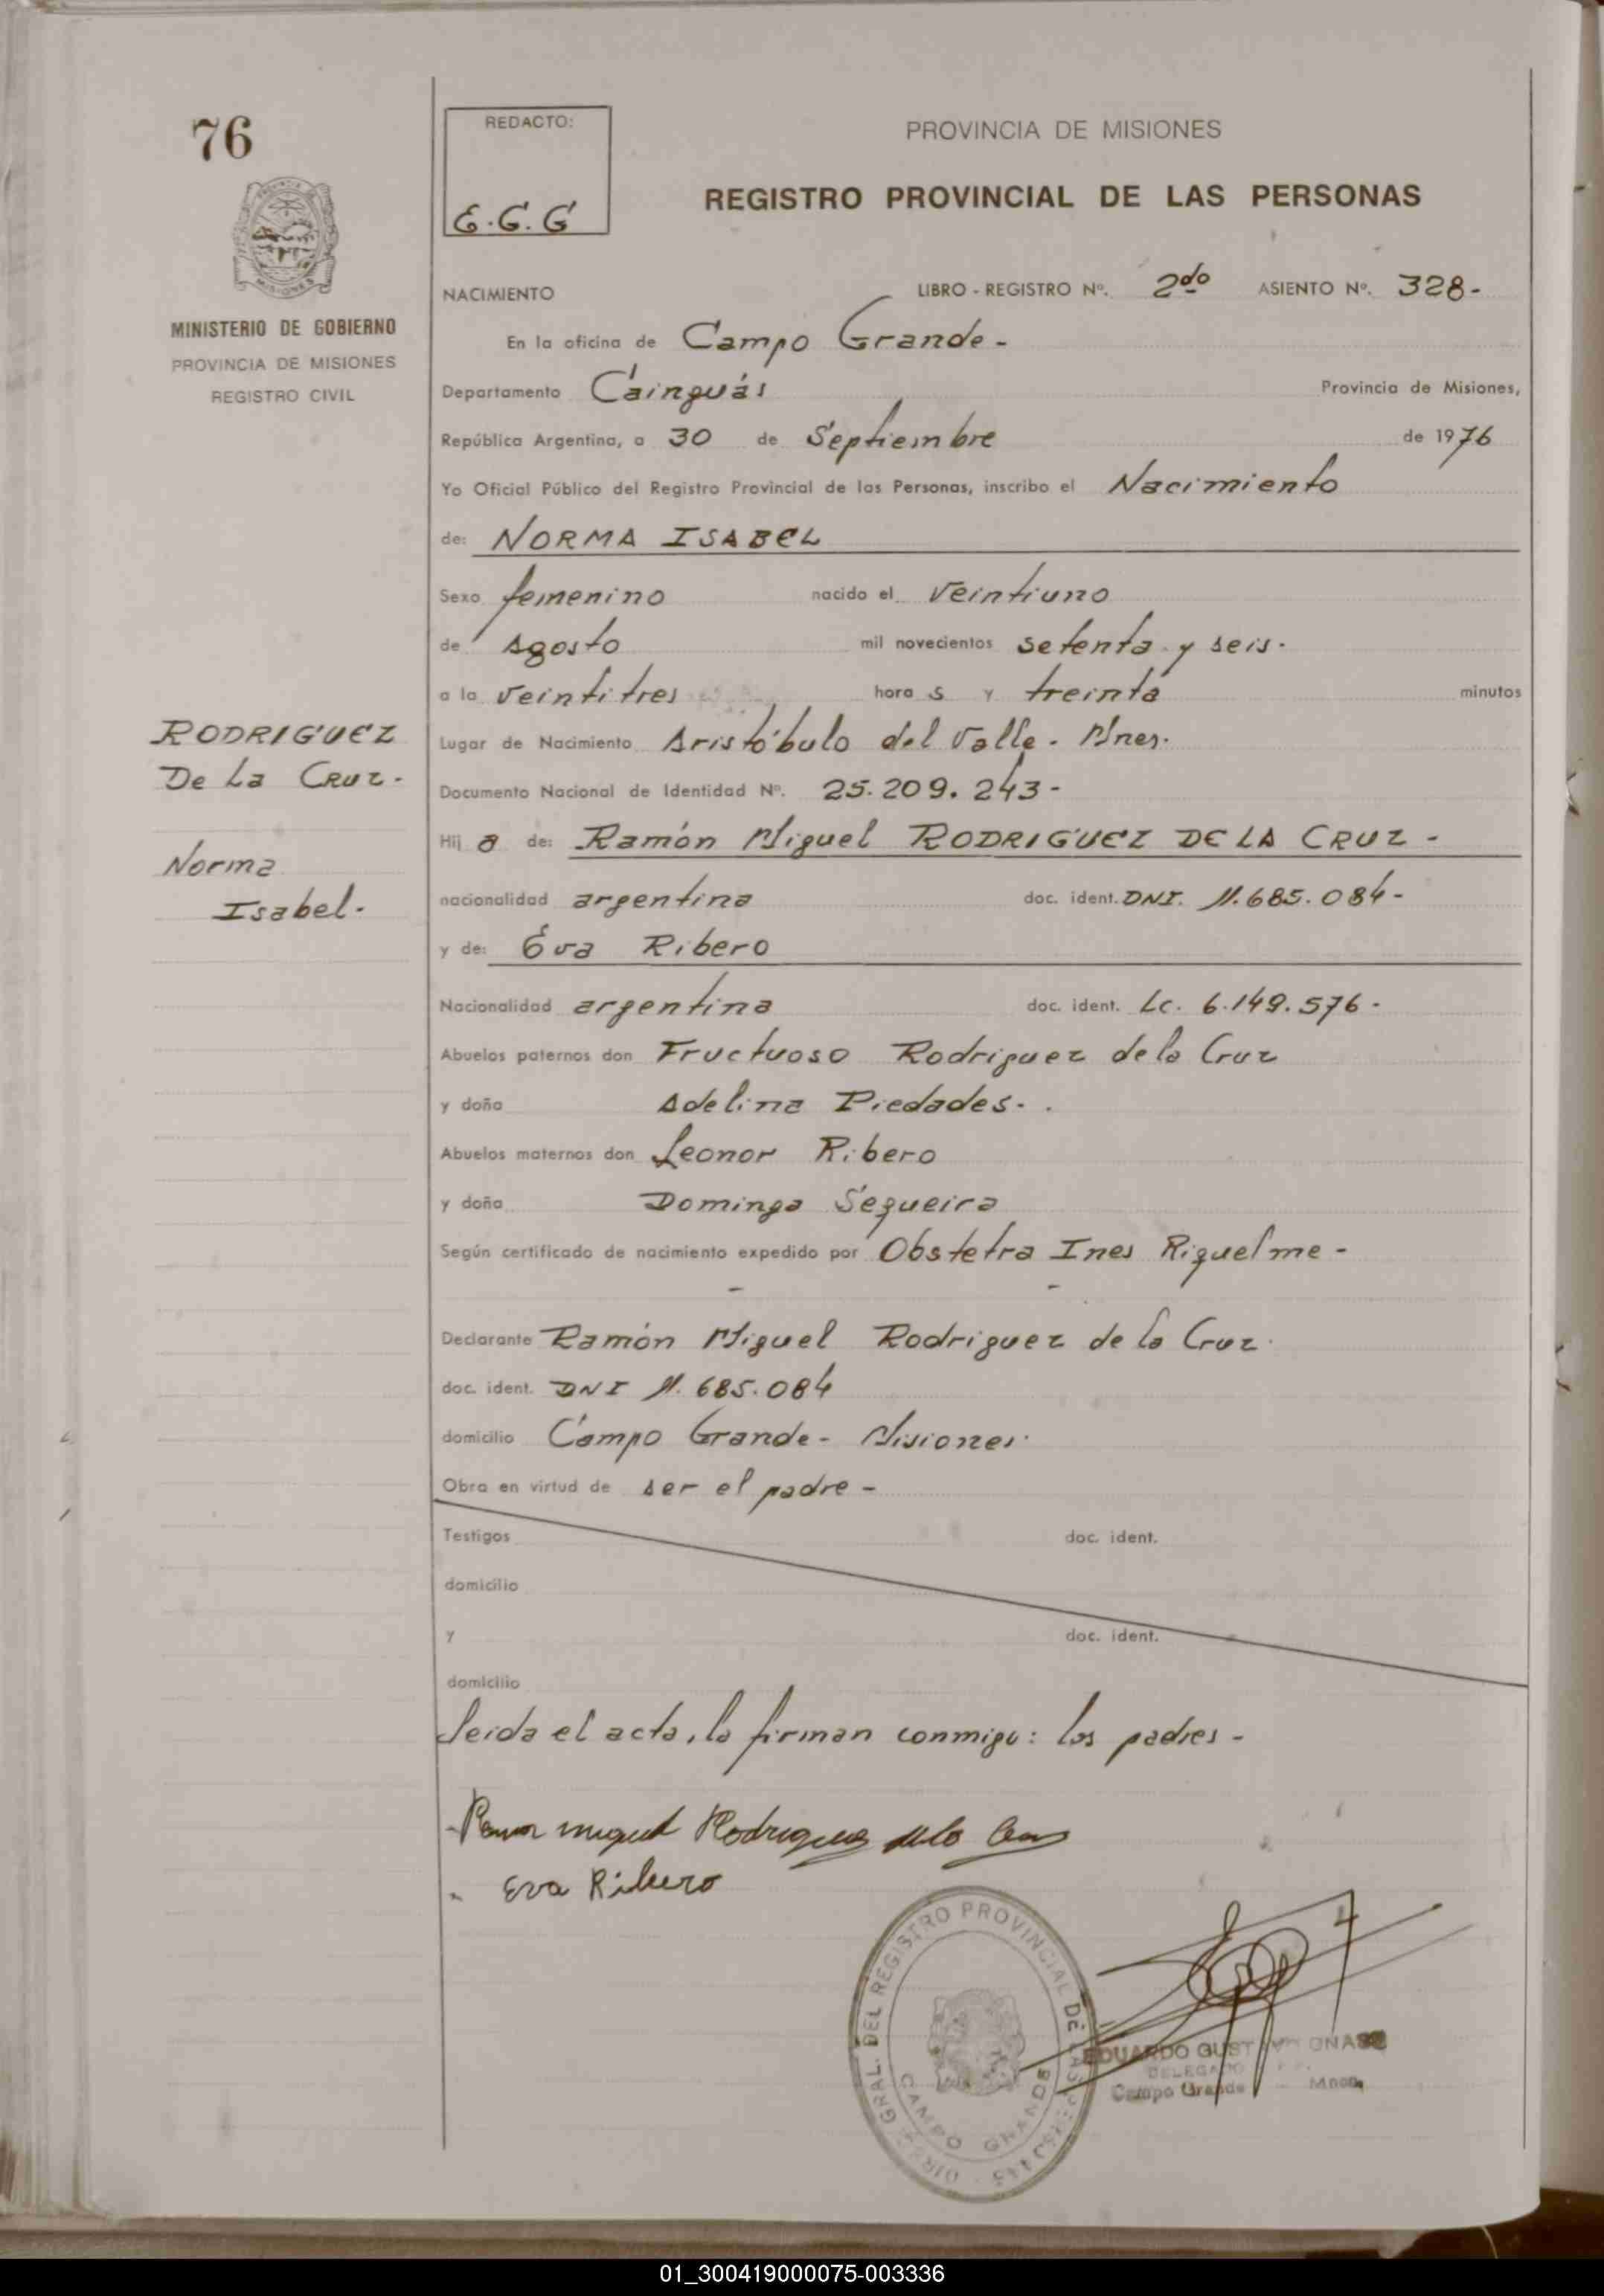 76
MINISTERIO DE GOBIERNO
PROVINCIA DE MISIONES
REGISTRO CIVIL
RODRIGUEZ
De La CRUZ.-
Norma
Isabel.-
REDACTO:
E.G.G
PROVINCIA DE MISIONES
REGISTRO PROVINCIAL DE LAS PERSONAS
NACIMIENTO LIBRO - REGISTRO Nº. 2do ASIENTO Nº. 328-
En la oficina de Campo Grande-
Departamento Cainguás Provincia de Misiones,
República Argentina, a 30 de Septiembre de 1976
Yo Oficial Público del Registro Provincial de las Personas, inscribo el Nacimiento
de: NORMA ISABEL
Sexo femenino nacido el veintiuno
de Agosto mil novecientos setenta y seis.
a la veintitres hora s y treinta minutos
Lugar de Nacimiento Aristóbulo del Valle- Mnes.
Documento Nacional de Identidad Nº. 25.209.243-
Hij a de: Ramón Miguel RODRIGUEZ DE LA CRUZ-
nacionalidad argentina doc. ident. DNI. 11.685.084-
y de: Eva Ribero
Nacionalidad argentina doc. ident. Lc. 6.149.576-
Abuelos paternos don Fructuoso Rodriguez de la Cruz
y doña Adelina Piedades..
Abuelos maternos don Leonor Ribero
y doña Dominga Sequeira
Según certificado de nacimiento expedido por Obstetra Ines Riquelme-
Declarante Ramón Miguel Rodriguez de la Cruz.
doc. ident. DNI 11.685.084
domicilio Campo Grande- Misiones.
Obra en virtud de ser el padre-
Testigos doc. ident.
domicilio
y doc. ident.
domicilio
Leida el acta, la firman conmigo: los padres-
Ramon miguel Rodriguez de la Cruz
Eva Ribero
DIREC. GRAL. DEL REGISTRO PROVINCIAL DE LAS PERSONAS
CAMPO GRANDE
EDUARDO
DELEGADO
Campo Grande Mnes.
01_300419000075-003336